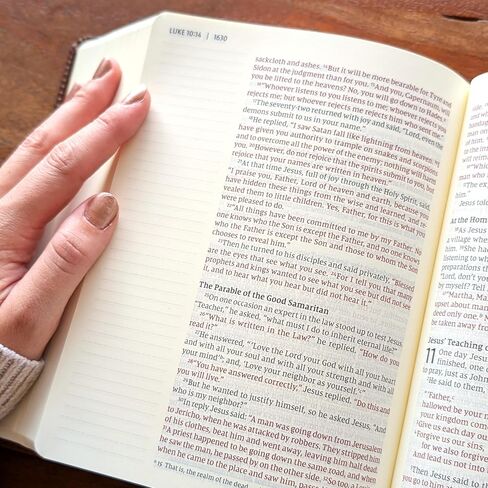 LUKE 10:14 | 1630
sackcloth and ashes. 14But it will be more bearable for Tyre and
Sidon at the judgment than for you. 15And you, Capernaum, will
you be lifted to the heavens? No, you will go down to Hades.a
16"Whoever listens to you listens to me; whoever rejects you
rejects me; but whoever rejects me rejects him who sent me."
17The seventy-two returned with joy and said, "Lord, even the
demons submit to us in your name."
18He replied, "I saw Satan fall like lightning from heaven. 19I
have given you authority to trample on snakes and scorpions
and to overcome all the power of the enemy; nothing will harm
you. 20However, do not rejoice that the spirits submit to you, but
rejoice that your names are written in heaven."
21At that time Jesus, full of joy through the Holy Spirit, said,
"I praise you, Father, Lord of heaven and earth, because you
have hidden these things from the wise and learned, and
revealed them to little children. Yes, Father, for this is what you
were pleased to do.
22"All things have been committed to me by my Father. No
one knows who the Son is except the Father, and no one knows
who the Father is except the Son and those to whom the Son
chooses to reveal him."
23Then he turned to his disciples and said privately, "Blessed
are the eyes that see what you see. 24For I tell you that many
prophets and kings wanted to see what you see but did not see
it, and to hear what you hear but did not hear it."
The Parable of the Good Samaritan
25On one occasion an expert in the law stood up to test Jesus.
"Teacher," he asked, "what must I do to inherit eternal life?"
26"What is written in the Law?" he replied. "How do you
read it?"
27He answered, "'Love the Lord your God with all your heart
and with all your soul and with all your strength and with all
your mind'b; and, 'Love your neighbor as yourself.'c"
28"You have answered correctly," Jesus replied. "Do this and
you will live."
29But he wanted to justify himself, so he asked Jesus, "And
who is my neighbor?"
30In reply Jesus said: "A man was going down from Jerusalem
to Jericho, when he was attacked by robbers. They stripped him
of his clothes, beat him and went away, leaving him half dead.
31A priest happened to be going down the same road, and when
he saw the man, he passed by on the other side. 32So too, a
when he came to the place and saw him, passed
a 15 That is, the realm of the dead
At the Home
A village
she had
listening to
preparations
"Lord, don't
by myself? Tell
"Martha, Ma
upset about many
deed only one.
be taken away from
Jesus' Teaching
11 One day Jesus
finished, one
to pray, just as John
2He said to them,
"Father,
hallowed be your
kingdom come
3Give us each day our
4Forgive us our sins,
for we also forgive
And lead us not into
Then Jesus said to